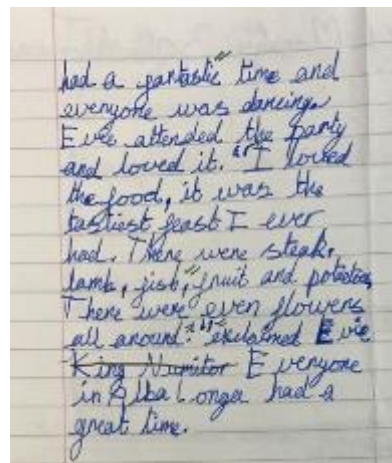 had a fantastic time and
everyone was dancing.
Evie attended the party
and loved it. "I loved
the food, it was the
tastiest feast I ever
had. There were steak,
lamb, fish, fruit and potatoes
There were even flowers
all around." exclaimed Evie
King Numitor Everyone
in Alba Longer had a
great time.